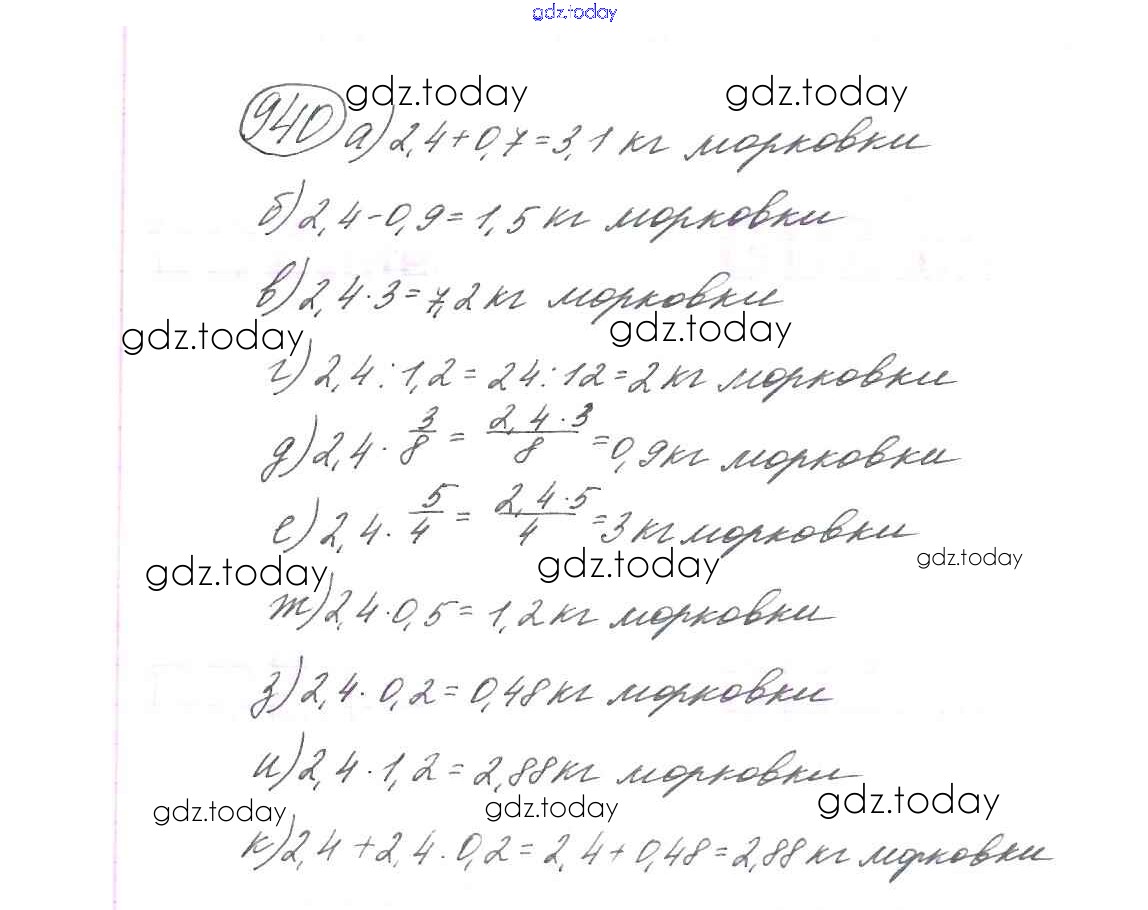 gdz.today
gdz.today gdz.today
940 а) 2,4+0,7=3,1 кг морковки
б) 2,4-0,9=1,5 кг морковки
в) 2,4·3=7,2 кг морковки
gdz.today gdz.today
г) 2,4:1,2=24:12=2 кг морковки
д) 2,4·3/8=2,4·3/8=0,9 кг морковки
е) 2,4·5/4=2,4·5/4=3 кг морковки
gdz.today gdz.today gdz.today
ж) 2,4·0,5=1,2 кг морковки
з) 2,4·0,2=0,48 кг морковки
и) 2,4·1,2=2,88 кг морковки
gdz.today gdz.today gdz.today
к) 2,4+2,4·0,2=2,4+0,48=2,88 кг морковки